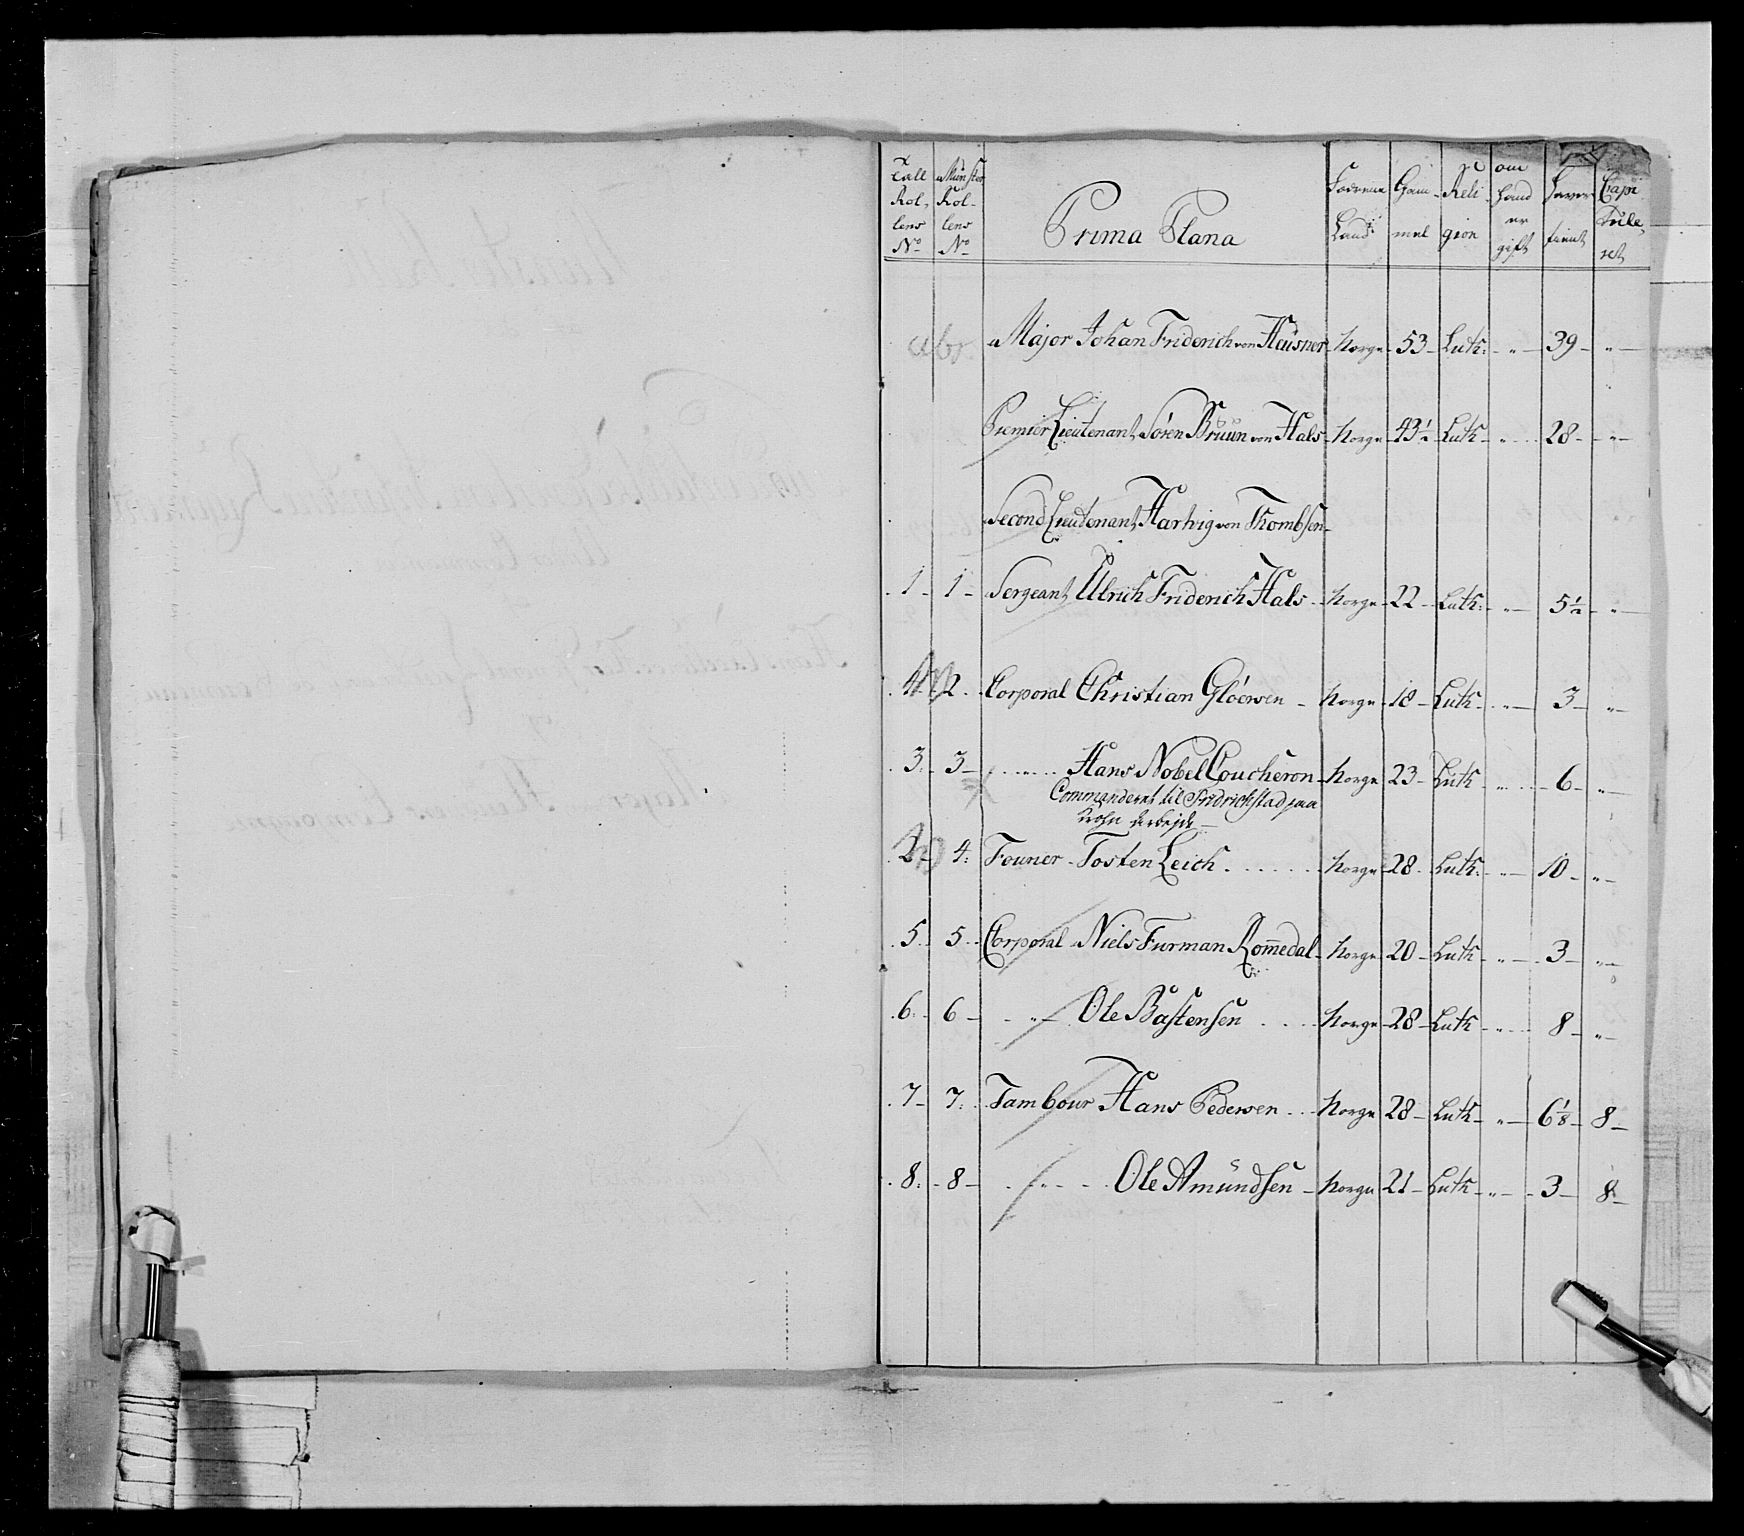 Tall Rol- lens No | Munster Rol- lens No | Prima Plana | Födrene Land | Gam- mel | Reli- gion | om hand er gift | haver tient | Capi- tule- ret
abs Major Johan Friderich von Hausner - Norge - 53 - Luth: - " - 39 - " -
Premier Lieutenant Sören Bruun von Hals - Norge - 43 1/2 - Luth - " - 28 - " -
Second Lieutenant Hartvig von Thombsen -
1 - 1 - Sergeant Ulrich Friderich Hals - Norge - 22 - Luth: - " - 5 1/2 - " -
4 2 Corporal Christian Glöersen - Norge - 18 - Luth - " - 3 - " -
3 - 3 - " Hans Nobel Coucheron - Norge - 23 - Luth - " - 6 - " -
Commanderet til Fridrichstad paa
arbejde -
2 - 4: Fourier - Tosten Leich . . . . Norge - 28 - Luth: - " - 10 - " -
5 - 5 - Corporal Niels Furman Rom̅edal - Norge - 20 - Luth - " - 3 - " -
6 - 6 - " - Ole Bastensen . . . Norge - 28 - Luth - " - 8 - " -
7 - 7: Tambour Hans Pedersen . . Norge - 28 - Luth - " - 6 1/8 - 8 -
8: - 8 - " - Ole Amundsen - Norge - 21 - Luth - " - 3 - 8 -